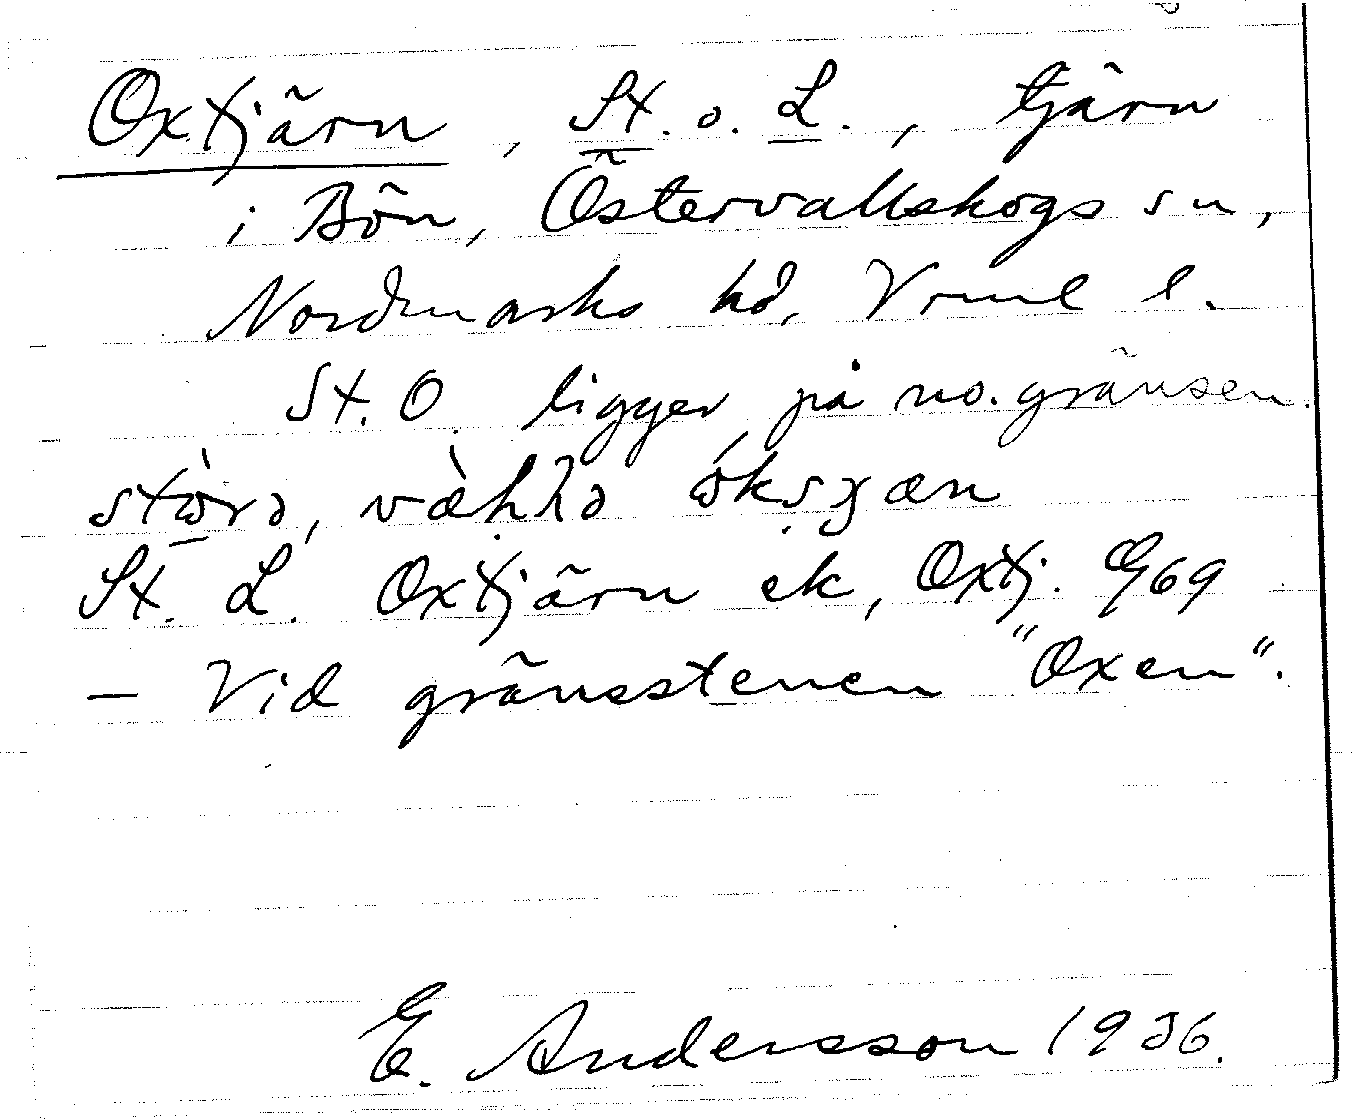 Oxtjärn, St. o. L., tjärn
i Bön, Östervallskogs sn,
Nordmarks hd, Vrml l.
St. O. ligger på no. gränsen.
St. L. Oxtjärn ek, Oxtj. G69
— Vid gränsstenen "Oxen".
E. Andersson 1936.